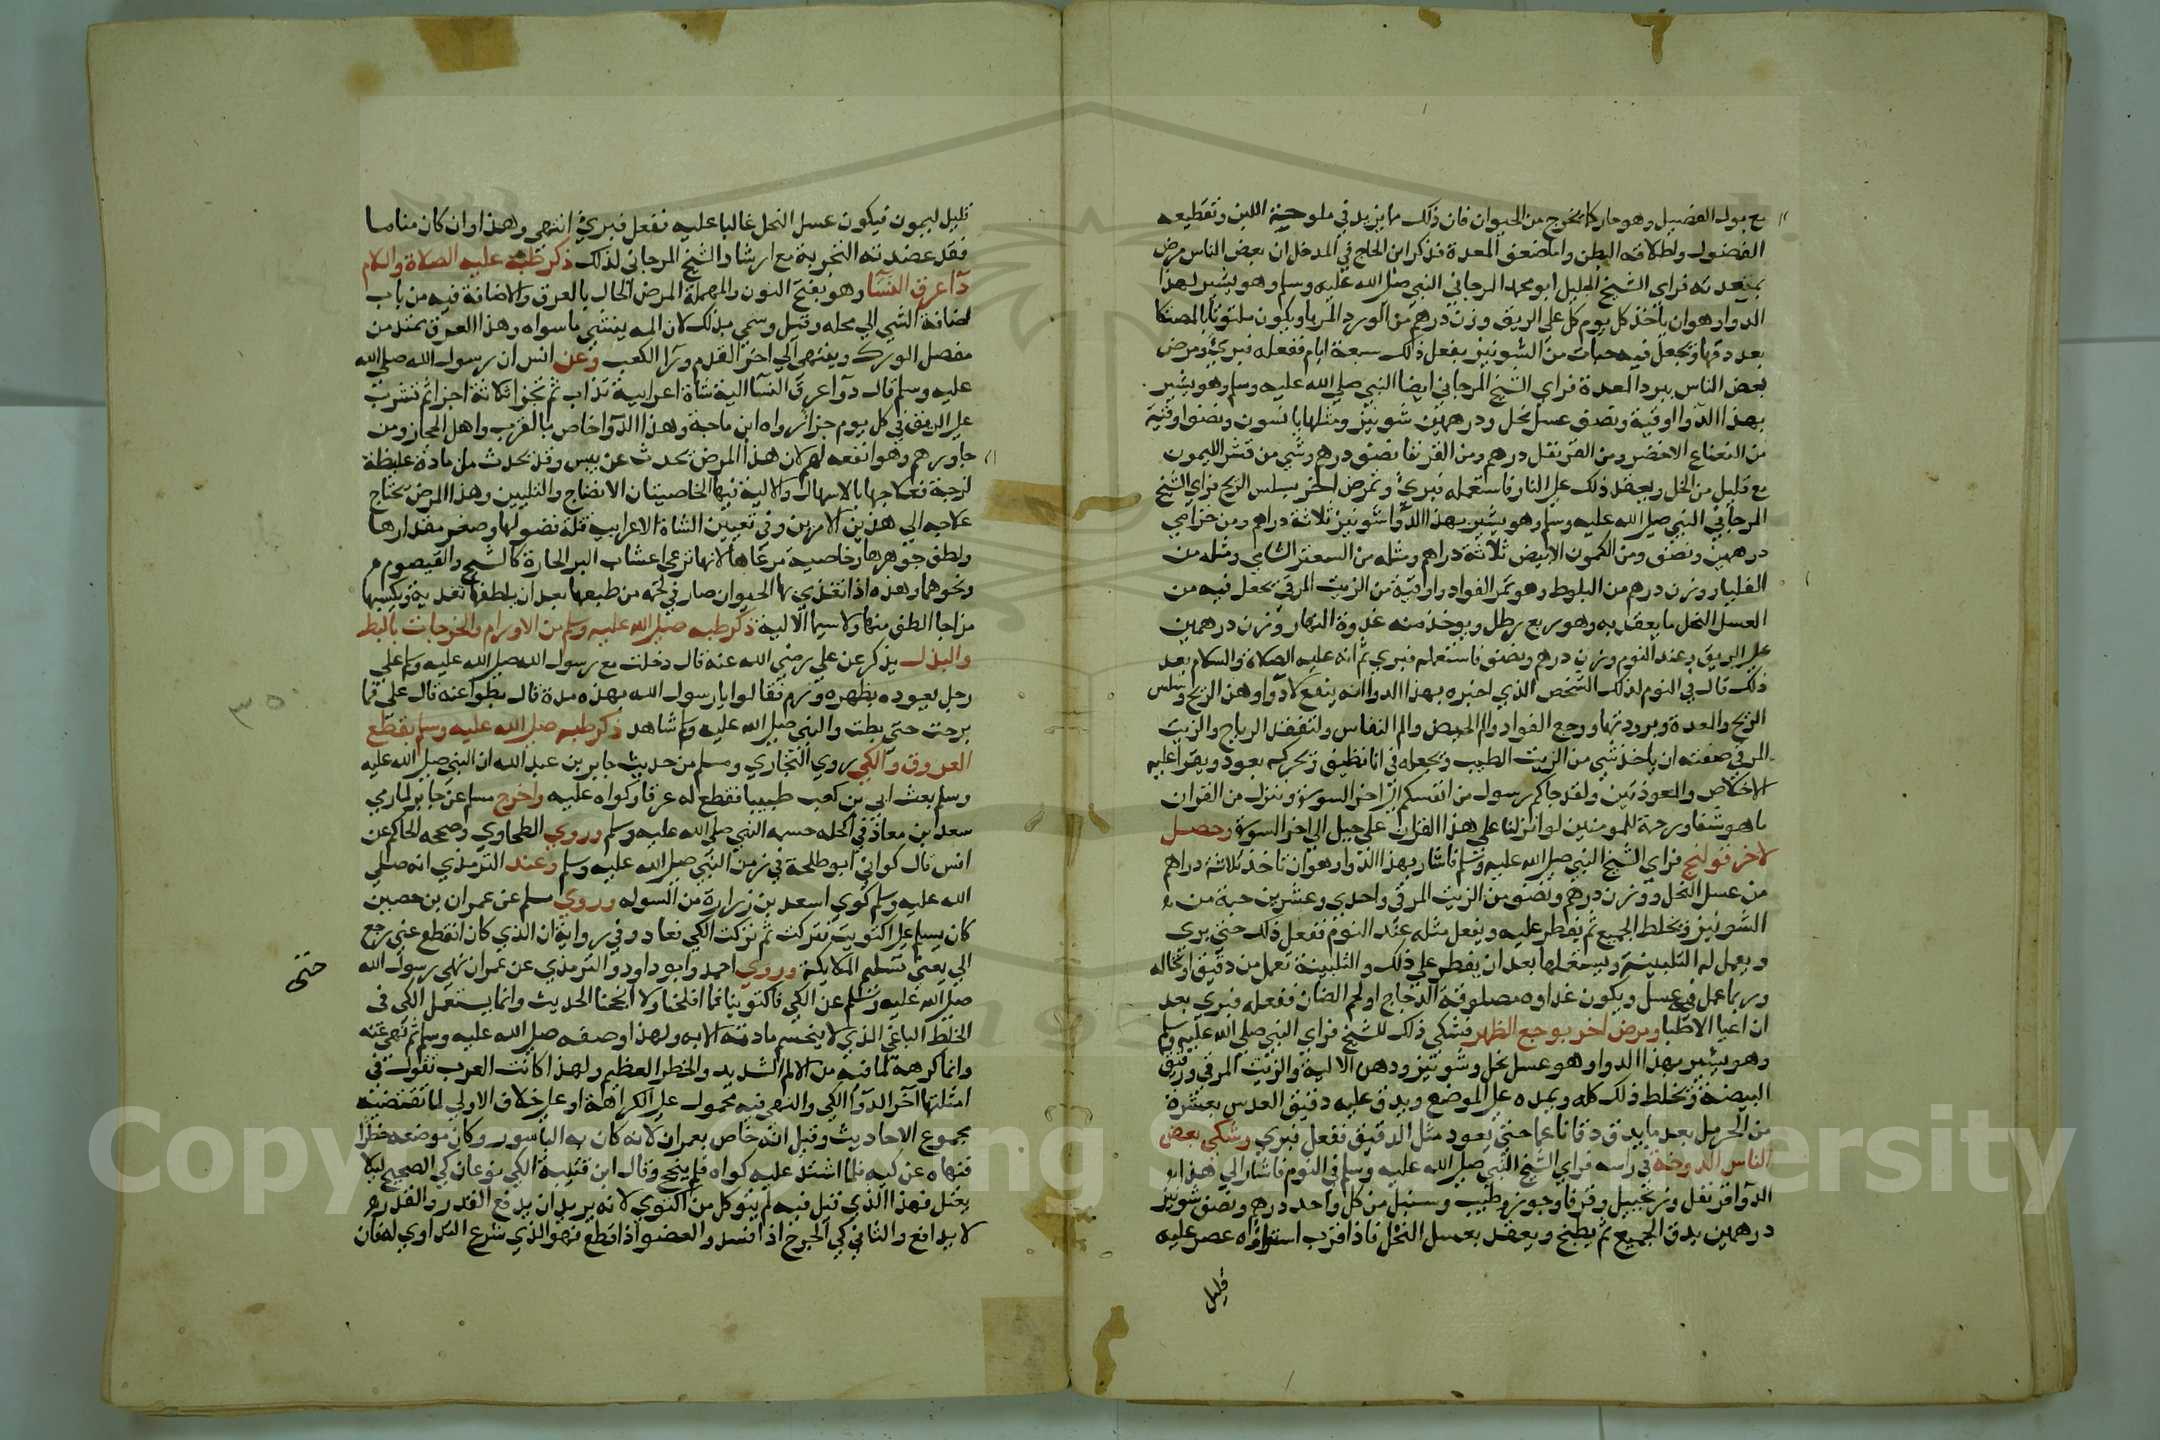 مع بول الفصيل وهو حار كما يخرج من الحيوان فان ذلك مما يزيد في ملوحية اللبن وتقطيعه
الفضول واطلاقه البطن واما ضعف المعدة فذكر ابن الحاج في المدخل ان بعض الناس مرض
بمعدته فراي الشيخ الجليل ابو محمد المرجاني النبي صلى الله عليه وسلم وهو يشير لهذا
الدوا وهو ان ياخذ كل يوم كل على الريق وزن درهم من الورد المربا ويكون ملتوتا بالمصتكا
بعد دقها ويجعل فيه حبات من الشونيز يفعل ذلك سبعة ايام ففعله فبري ومرض
بعض الناس ببرد المعدة فراي الشيخ المرجاني ايضا النبي صلى الله عليه وسلم وهو يشير
بهذا الدوا اوقية ونصف عسل نحل ودرهمين شونيز ومثلها يانسون ونصف اوقية
من النعناع الاخضر ومن القرنفل درهم ومن القرنفا نصف درهم وشي من قشر الليمون
مع قليل من الخل ويعقد ذلك على النار فاستعمله فبري ومرض اخر بسلس الريح فراي الشيخ
المرجاني النبي صلى الله عليه وسلم وهو يشير بهذا الدوا شونيز ثلاثة دراهم ومن خزامي
درهمين ونصف ومن الكمون الابيض ثلاثة دراهم ومثله من السعتر الشامي ومثله من
الفليا ووزن درهم من البلوط وهو ثمر الفواد واوقية من الزيت المرقي يجعل فيه من
العسل النحل ما يعقد به وهو ربع رطل ويوخذ منه غدوة النهار وزن درهمين
على الريق وعند النوم وزن درهم ونصف فاستعمله فبري ثم انه عليه الصلاة والسلام بعد
ذلك قال في النوم لذلك الشخص الذي اخبره بهذا الدوا انه ينفع لادواوهن الريح وسلس
الريح والمعدة وبرودتها ووجع الفواد والم الحيض والم النفاس ولتعقد الرياح والزيت
المرقي صفته ان ياخذ شي من الزيت الطيب ويجعله في انا نظيف ويحركه بعود ويقرا عليه
الاخلاص والمعوذتين ولقد جاكم رسول من انفسكم الى اخر السورة وننزل من القران
ما هو شفا ورحمة للمومنين لو انزلنا على هذا القران على جبل الى اخر السورة وحصل
لاخر قولنج فراي الشيخ النبي صلى الله عليه وسلم فاشار بهذا الدوا وهو ان تاخذ ثلاثة دراهم
من عسل النحل ووزن درهم ونصف من الزيت المرقي واحدي وعشرين حبة من
الشونيز ويخلط الجميع ثم يفطر عليه ويفعل مثله عند النوم ففعل ذلك حتى بري
ويعمل له التلبينة ويستعملها بعد ان يفطر على ذلك والتلبينة تعمل من دقيق او نخاله
وربما عمل فيه عسل ويكون غداوه مصلوقة الدجاج او لحم الضان ففعله فبري بعد
ان اعيا الاطبا ومرض اخر بوجع الظهر فشكي ذلك للشيخ فراي النبي صلى الله عليه وسلم
وهو يشير بهذا الدوا وهو عسل نحل وشونيز ودهن الالية والزيت المرقي ورقيق
البيضة ويخلط ذلك كله ويمده على الموضع ويدق عليه دقيق العدس بقشرة
من الحرمل بعد ما يدق دقا ناعما حتى يعود مثل الدقيق ففعل فبري وشكي بعض
الناس الدوخة في راسه فراي الشيخ النبي صلى الله عليه وسلم في النوم فاشار الي هذا
الدوا قرنفل وزنجبيل وقرفا وجوز طيب وسنبل من كل واحد درهم ونصف شونيز
درهمين يدق الجميع ثم يطبخ ويعقد بعسل النحل فاذا قرب استواوه عصر عليه
قليل
قليل ليمون فيكون عسل النحل غالبا عليه ففعل فبري انتهى وهذا وان كان مناما
فقد عضدته التجربة مع ارشاد الشيخ المرجاني لذلك ذكر طبه عليه الصلاة والسلام
دا عرق النسا وهو بفتح النون والمهملة المرض الحال بالعرق والاضافة فيه من باب
اضافة الشي الي محله وقيل وسمي بذلك لان المه ينسي ما سواه وهذا العرق يمتد من
مفصل الورك وينتهي الي اخر القدم ورا الكعب وعن انس ان رسول الله صلى الله
عليه وسلم قال دوا عرق النسا الية شاة اعرابية تذاب ثم تجزا ثلاثة اجزا ثم تشرب
على الريق في كل يوم جزا رواه ابن ماجة وهذا الدوا خاص بالعرب واهل الحجاز ومن
جاورهم وهو انفعه لهم لان هذا المرض يحدث عن يبس وقد يحدث من مادة غليظة
لزجة فعلاجها بالاسهال والالية فيها الخاصيتان الانضاج والتليين وهذا المرض يحتاج
علاجه الي هذين الامرين وفي تعيين الشاة الاعرابية قلة فضولها وصغر مقدارها
ولطف جوهرها وخاصية مرعاها لانها ترعي اعشاب البر الحارة كالشيح والقيصوم
ونحوهما وهذه اذا تغذي بها الحيوان صار في لحمه من طبعها بعد ان يلطفها تغذية ويكسبها
مزاجا الطف منها ولا سيما الالية ذكر طبه صلى الله عليه وسلم من الاورام والخرجات بالبط
والبذل يذكر عن علي رضي الله عنه قال دخلت مع رسول الله صلى الله عليه وسلم على
رجل يعوده بظهره ورم فقالوا يا رسول الله بهذه مدة قال بطوا عنه قال علي فما
برحت حتى بطت والنبي صلى الله عليه وسلم شاهد ذكر طبه صلى الله عليه وسلم بقطع
العروق والكي روي البخاري ومسلم من حديث جابر بن عبد الله ان النبي صلى الله عليه
وسلم بعث الي ابي بن كعب طبيبا فقطع له عرقا وكواه عليه واخرج مسلم عن جابر لما رمي
سعد ابن معاذ في اكحله حسمه النبي صلى الله عليه وسلم وروي الطحاوي وصححه الحاكم عن
انس قال كواني ابو طلحة في زمن النبي صلى الله عليه وسلم وعند الترمذي انه صلى
الله عليه وسلم كوي اسعد بن زرارة من الشوله وروي مسلم عن عمران بن حصين
كان يسلم علي اكتويت فتركت ثم تركت الكي فعاد وفي رواية ان الذي كان انقطع عني رجع
الي يعني تسليم الملايكة وروي احمد وابو داود والترمذي عن عمران نهى رسول الله
صلى الله عليه وسلم عن الكي فاكتوينا فما افلحنا ولا انجحنا الحديث وانما يستعمل الكي في
الخلط الباغي الذي لا ينحسم مادته الا به ولهذا وصفه صلى الله عليه وسلم ثم نهى عنه
وانما كرهه لما فيه من الالم الشديد والخطر العظيم ولهذا كانت العرب تقول في
امثلتها اخر الدوا الكي والنهي فيه محمول على الكراهة او على خلاف الاولي لما تقتضيه
مجموع الاحاديث وقيل انه خاص بعمران لانه كان به الباسور وكان موضعه خطرا
فنهاه عن كيه فلما اشتد عليه كواه فلم ينجح وقال ابن قتيبة الكي نوعان كي الصحيح ليلا
يعتل فهذا الذي قيل فيه لم يتوكل من اكتوي لانه يريد ان يدفع القدر والقدر
لا يدافع والثاني كي الجرح اذا فسد والعضو اذا قطع فهو الذي شرع التداوي له فان
حتى
٣٥